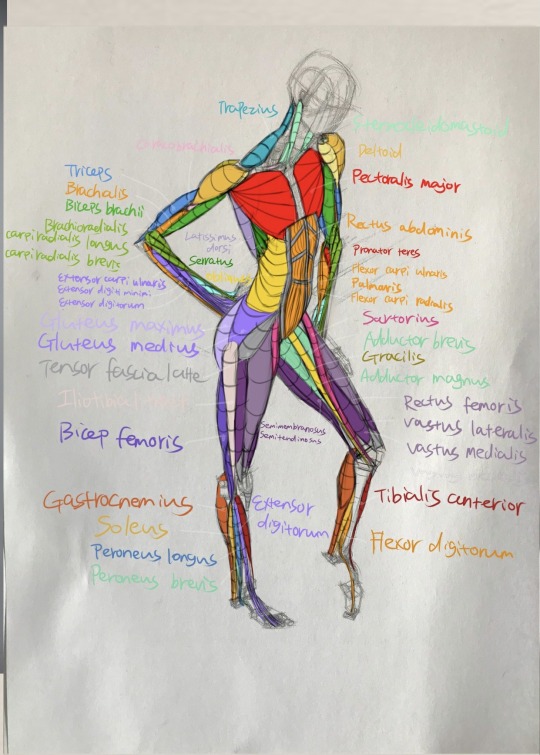 Trapezius
Sternocleidomastoid
Coracobrachialis
Deltoid
Triceps
Pectoralis major
Brachalis
Biceps brachii
Brachioradialis
Rectus abdominis
carpi radialis longus
Latissimus
dorsi
carpi radialis brevis
Pronator teres
Serratus
Extensor carpi ulnaris
Flexor carpi ulnaris
Extensor digiti minimi
Palmaris
Extensor digitorum
Flexor carpi radialis
Gluteus maximus
Sartorius
Gluteus medius
Adductor brevis
Gracilis
Tensor fascia latte
Adductor magnus
Iliotibial
Rectus femoris
vastus lateralis
Bicep femoris
Semimembranosus
Semitendinosus
vastus medialis
Gastrocnemius
Extensor
digitorum
Tibialis anterior
Soleus
Peroneus longus
Flexor digitorum
Peroneus brevis